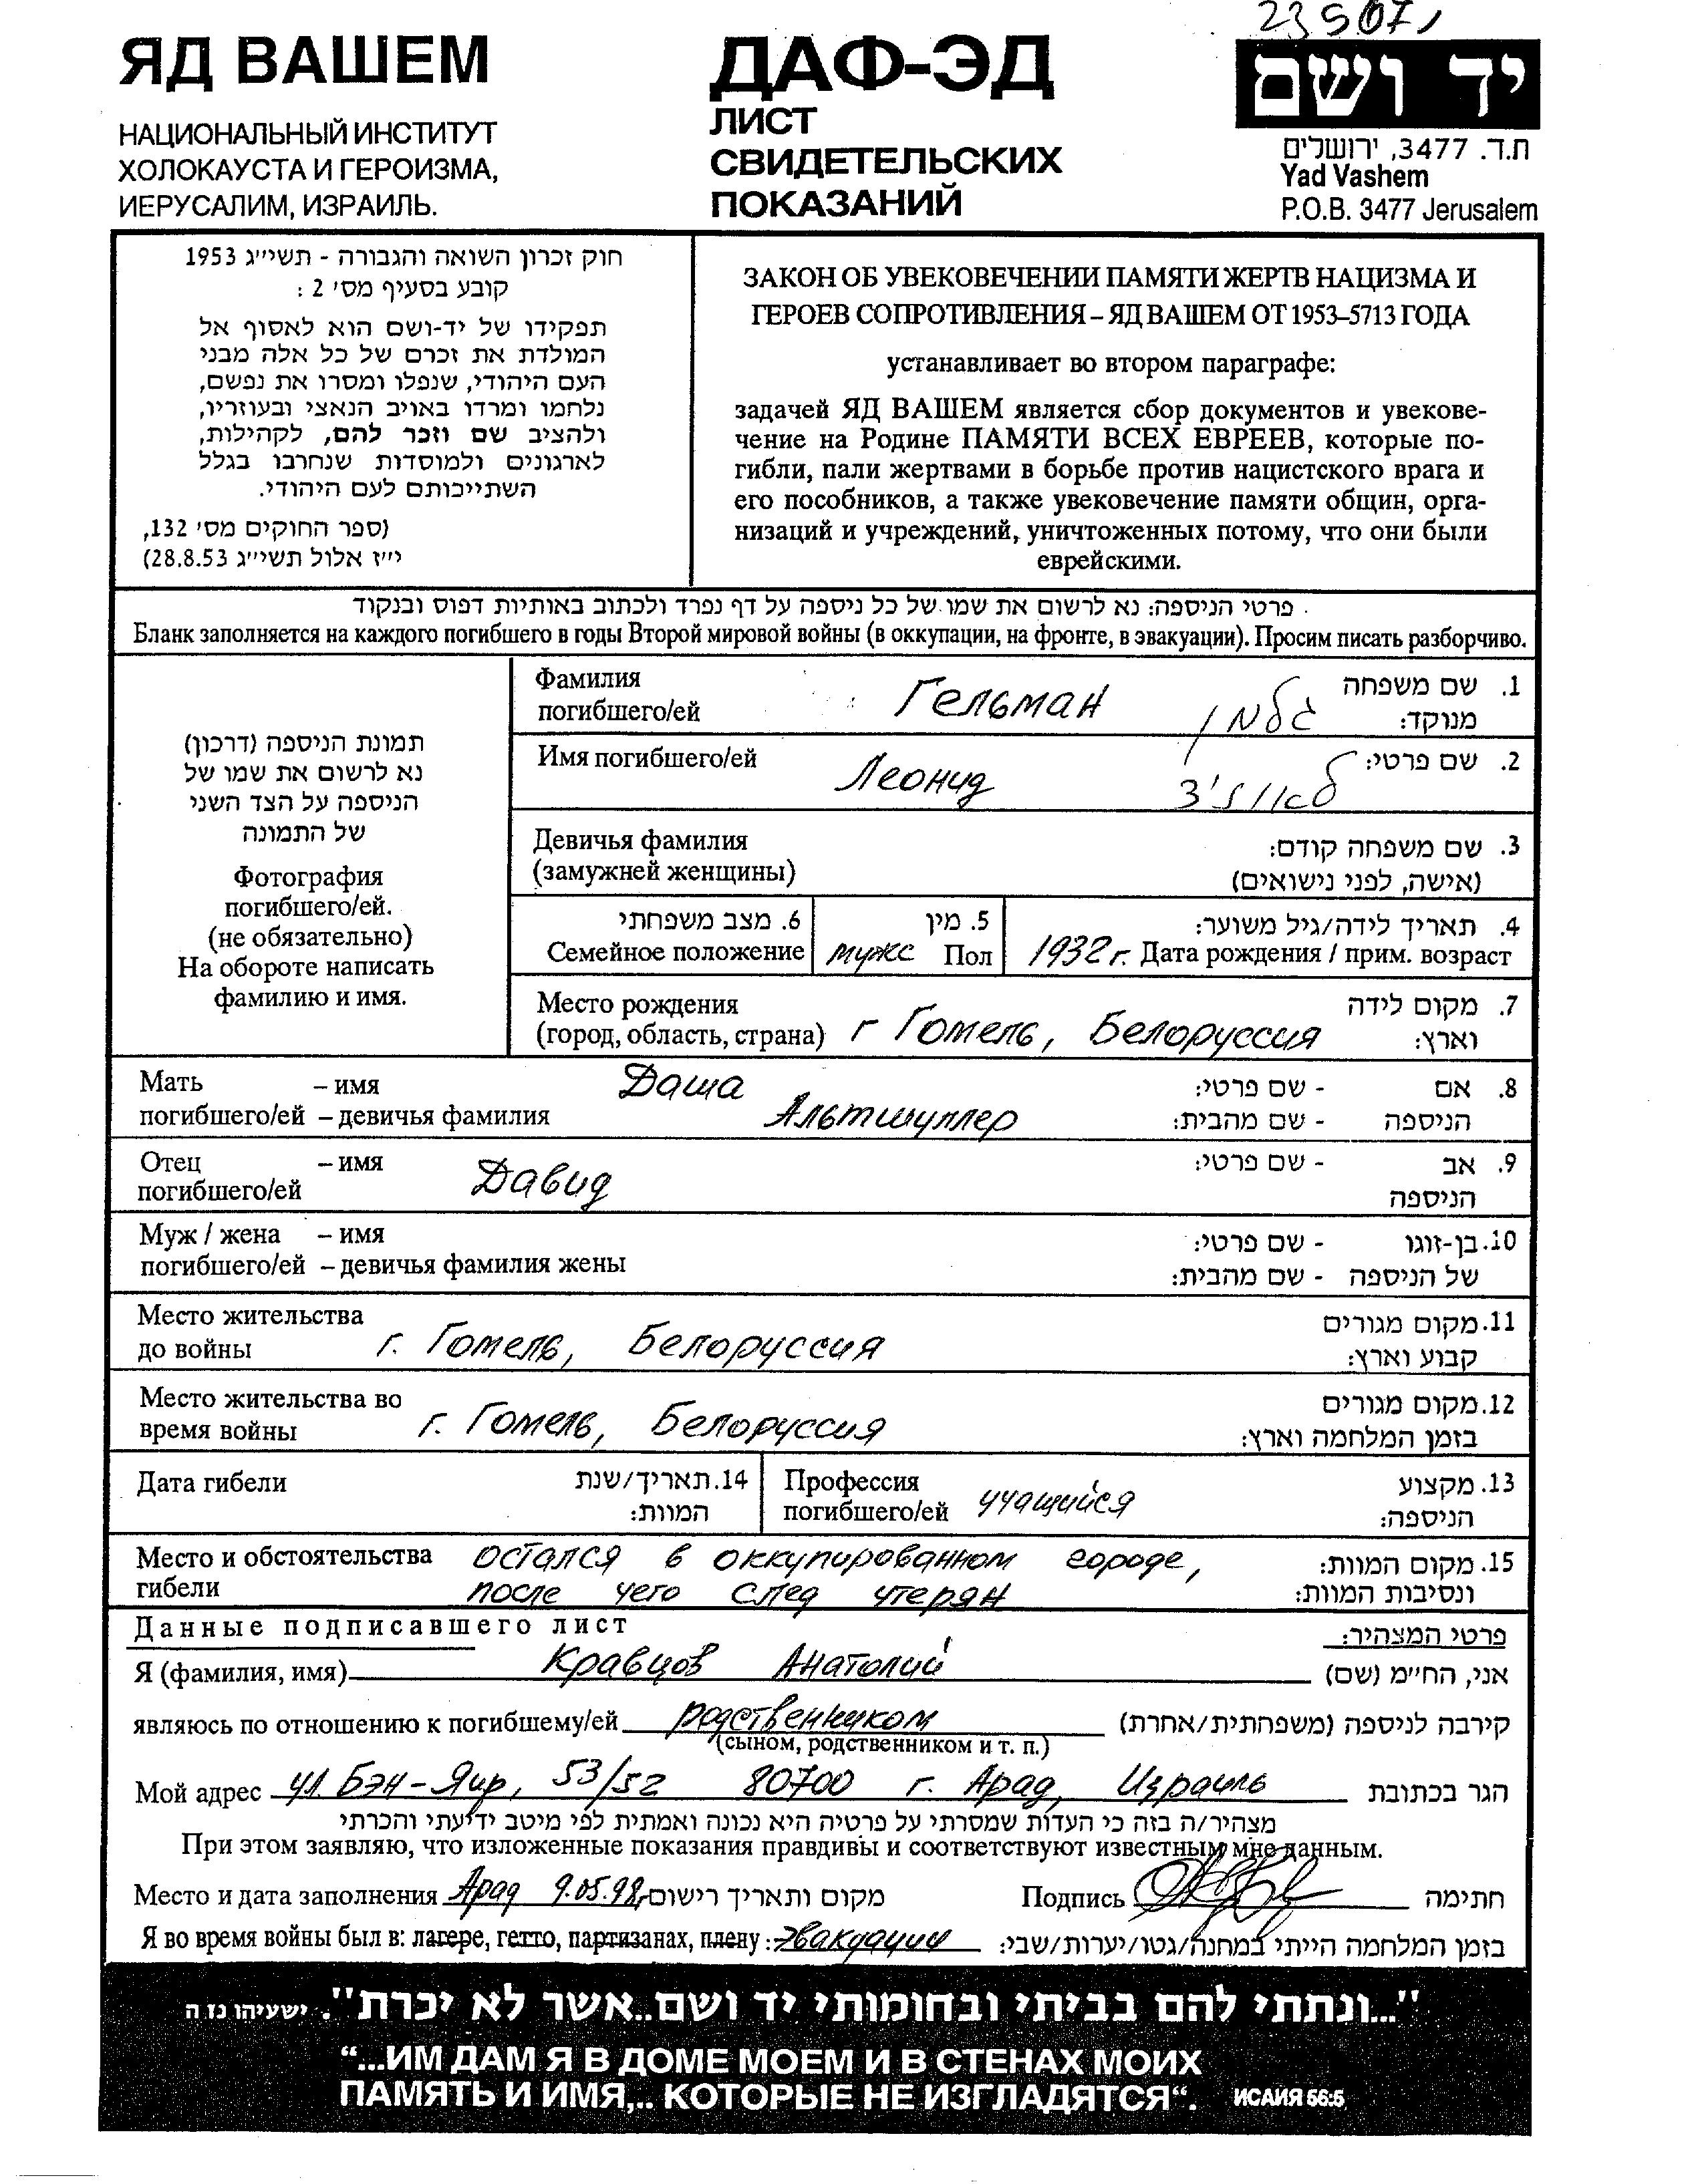 23507
ЯД ВАШЕМ
НАЦИОНАЛЬНЫЙ ИНСТИТУТ
ХОЛОКАУСТА И ГЕРОИЗМА,
ИЕРУСАЛИМ, ИЗРАИЛЬ.
ДАФ-ЭД
ЛИСТ
СВИДЕТЕЛЬСКИХ
ПОКАЗАНИЙ
יד ושם
ת.ד. 3477, ירושלים
Yad Vashem
P.O.B. 3477 Jerusalem
חוק זכרון השואה והגבורה - תשי״ג 1953
קובע בסעיף מס׳ 2 :
תפקידו של יד-ושם הוא לאסוף אל
המולדת את זכרם של כל אלה מבני
העם היהודי, שנפלו ומסרו את נפשם,
נלחמו ומרדו באויב הנאצי ובעוזריו,
ולהציב שם וזכר להם, לקהילות,
לארגונים ולמוסדות שנחרבו בגלל
השתייכותם לעם היהודי.
(ספר החוקים מס׳ 132,
י״ז אלול תשי״ג 28.8.53)
ЗАКОН ОБ УВЕКОВЕЧЕНИИ ПАМЯТИ ЖЕРТВ НАЦИЗМА И
ГЕРОЕВ СОПРОТИВЛЕНИЯ – ЯД ВАШЕМ ОТ 1953–5713 ГОДА
устанавливает во втором параграфе:
задачей ЯД ВАШЕМ является сбор документов и увекове-
чение на Родине ПАМЯТИ ВСЕХ ЕВРЕЕВ, которые по-
гибли, пали жертвами в борьбе против нацистского врага и
его пособников, а также увековечение памяти общин, орга-
низаций и учреждений, уничтоженных потому, что они были
еврейскими.
פרטי הניספה: נא לרשום את שמו של כל ניספה על דף נפרד ולכתוב באותיות דפוס ובנקוד
Бланк заполняется на каждого погибшего в годы Второй мировой войны (в оккупации, на фронте, в эвакуации). Просим писать разборчиво.
תמונת הניספה (דרכון)
נא לרשום את שמו של
הניספה על הצד השני
של התמונה
Фотография
погибшего/ей.
(не обязательно)
На обороте написать
фамилию и имя.
Фамилия погибшего/ей Гельман גלמן 1. שם משפחה מנוקד:
Имя погибшего/ей Леонид 2. שם פרטי:
Девичья фамилия 3. שם משפחה קודם:
(замужней женщины) (אישה, לפני נישואים)
6. מצב משפחתי 5. מין 4. תאריך לידה/גיל משוער:
Семейное положение мужс Пол 1932 г. Дата рождения / прим. возраст
Место рождения 7. מקום לידה
(город, область, страна) г Гомель, Белоруссия וארץ:
Мать – имя Даша 8. אם - שם פרטי:
погибшего/ей – девичья фамилия Альтшуллер הניספה - שם מהבית:
Отец – имя Давид 9. אב - שם פרטי:
погибшего/ей הניספה
Муж / жена – имя 10. בן-זוגו - שם פרטי:
погибшего/ей – девичья фамилия жены של הניספה - שם מהבית:
Место жительства 11. מקום מגורים
до войны г. Гомель, Белоруссия קבוע וארץ:
Место жительства во 12. מקום מגורים
время войны г. Гомель, Белоруссия בזמן המלחמה וארץ:
Дата гибели 14. תאריך/שנת המוות:
Профессия погибшего/ей учащийся 13. מקצוע הניספה:
Место и обстоятельства остался в оккупированном городе, 15. מקום המוות:
гибели после чего след утерян ונסיבות המוות:
Данные подписавшего лист פרטי המצהיר:
Я (фамилия, имя) Кравцов Анатолий אני, הח״מ (שם)
являюсь по отношению к погибшему/ей родственником קירבה לניספה (משפחתית/אחרת)
(сыном, родственником и т. п.)
Мой адрес ул. Бэн-Яир, 53/52 80700 г. Арад, Израиль הגר בכתובת
מצהיר/ה בזה כי העדות שמסרתי על פרטיה היא נכונה ואמתית לפי מיטב ידיעתי והכרתי
При этом заявляю, что изложенные показания правдивы и соответствуют известным мне данным.
Место и дата заполнения Арад 9.05.98 מקום ותאריך רישום Подпись חתימה
Я во время войны был в: лагере, гетто, партизанах, плену : эвакуации בזמן המלחמה הייתי במחנה/גטו/יערות/שבי:
"...ונתתי להם בביתי ובחומותי יד ושם..אשר לא יכרת". ישעיהו נז ה
“...ИМ ДАМ Я В ДОМЕ МОЕМ И В СТЕНАХ МОИХ
ПАМЯТЬ И ИМЯ,.. КОТОРЫЕ НЕ ИЗГЛАДЯТСЯ“. ИСАИЯ 56:5